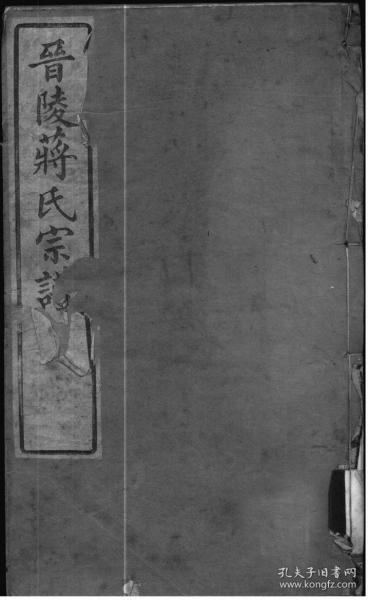 晉陵蔣氏宗
孔夫子旧书网
www.kongfz.com